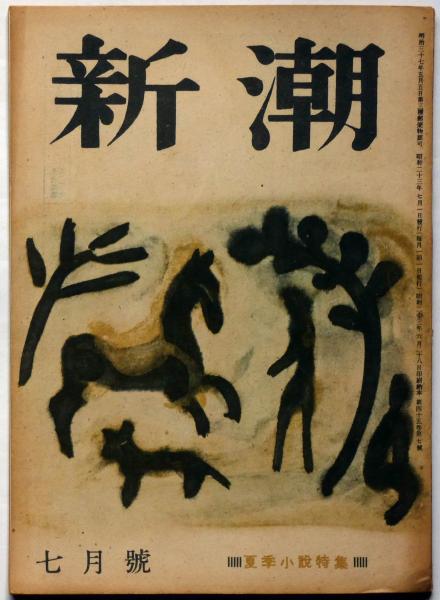 新潮
明治三十七年五月五日第三種郵便物認可 昭和二十三年七月一日發行(每月一回一日發行) 昭和二十三年六月二十八日印刷納本 第四十五卷第七號
七月號
夏季小說特集